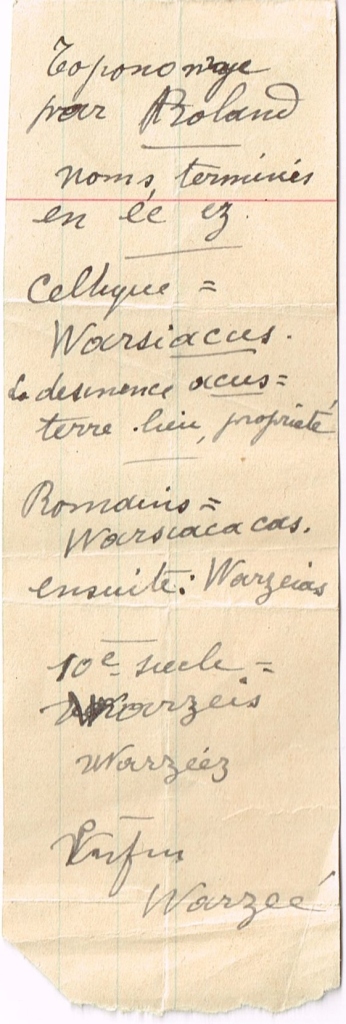 Toponomye
par Roland
noms terminés
en éé ez.
Celtique =
Warsiacus.
La desinence acus =
terre lieu, propriété
Romains =
Warsiacacas.
ensuite: Warzeias
10e siecle =
Warzeis
Warzéez
Enfin
Warzeé